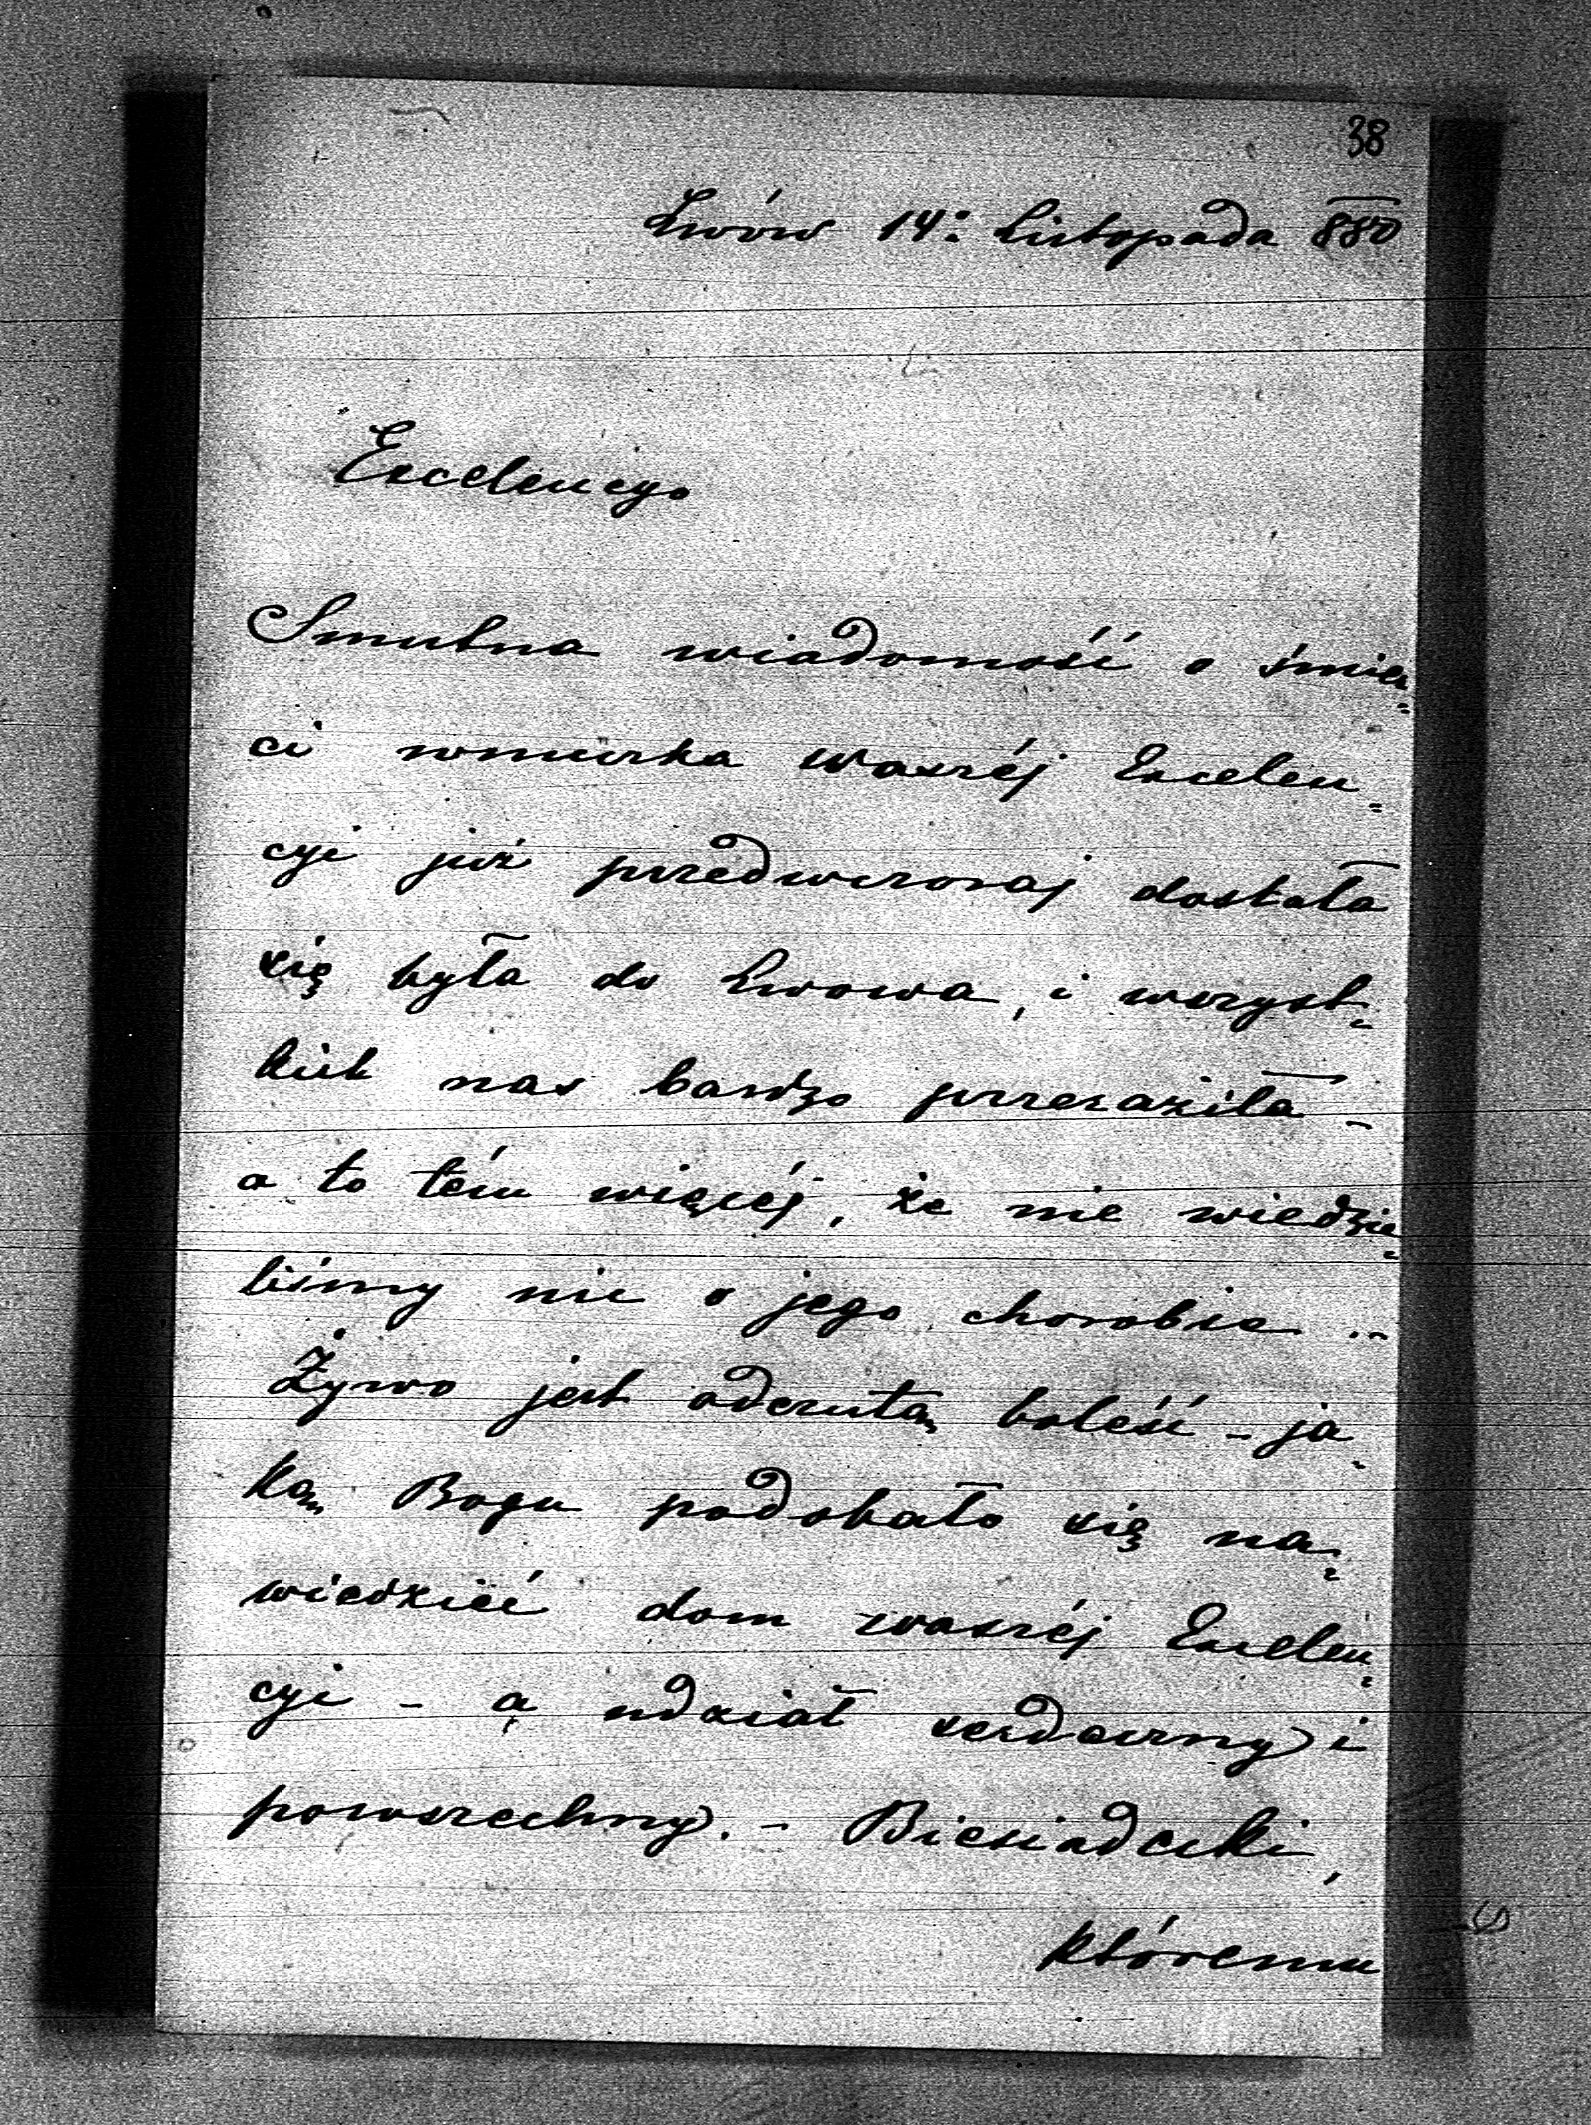 38
Lwów 14: Listopada 880
Excelencyo
Smutna wiadomość o śmier=
ci wnuczka waszéj Excelen=
cyi już przedwczoraj dostała
się była do Lwowa, i wszyst=
kich nas bardzo przeraziła –
a to tém więcéj, że nie wiedzie=
liśmy nic o jego chorobie ..
Żywo jest odczutą boleść – ja=
ką Bogu podobało się na=
wiedzieć dom waszéj Excelen=
cyi – a udział serdeczny i
powszechny. – Biesiadecki,
któremu